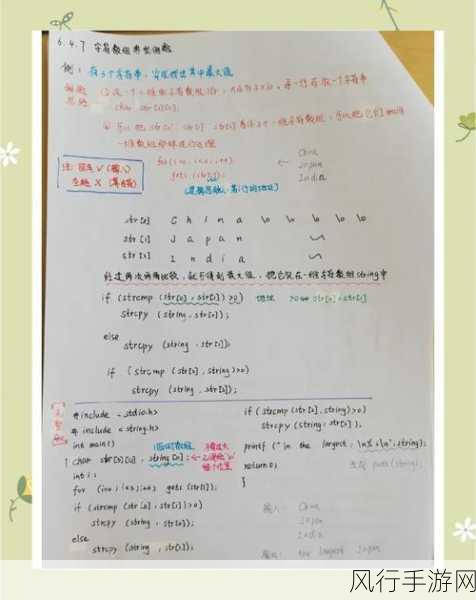 6.4.7 字符数组典型例题
例：有3个字符串，要求找出其中最大值
解题 ① 设一个二维的字符数组str，大小为3×10，每一行存放一个字符串
思路 char str[3][10];
② 可以把str[0]，str[1]，str[2]看作3个一维字符数组，可以把它们如同
一维数组那样进行处理
for(i=0;i<3;i++) ← China
gets(str[i]); Japan
India
注：回车√(输入)
空格 X
(逻辑思维：第i行的地址)
str[0] C h i n a \0 \0 \0 \0 \0
str[1] J a p a n
str[2] I n d i a
经过两次两两比较，就可得到最大值，把它放在一维字符数组string中
if (strcmp (str[0], str[1])>0) 地址
strcpy (string, str[0]);
else
strcpy (string, str[1]);
if (strcmp (str[2], string)>0)
strcpy (string, str[2]);
# include <stdio.h>
# include <string.h>
int main()
{ char str[3][10], string[10];
int i;
for (i=0;i<3;i++) gets (str[i]);
if (strcmp (str[0], str[1])>0)
strcpy (string, str[0]);
else
strcpy (string, str[1]);
if (strcmp (str[2], string)>0)
strcpy (string, str[2]);
printf ("\n the largest: \n%s\n", string);
return 0;
}
输入： China
Japan
India
输出： the largest Japan
风行手游网